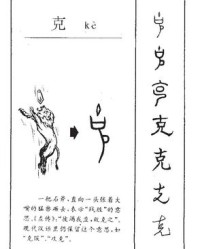 克 kè
一把石斧，直向一头张着大
嘴的猛兽砸去，表示“战胜”的意
思。《左传》：“彼竭我盈，故克之”。
现代汉语里仍保留这个意思，如
“克敌”、“攻克”。
克
克
克